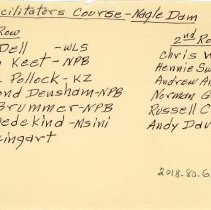 cilitators Course - Nagle Dam
Row
Dell - WLS
Keet - NPB
Pollock - KZ
ond Densham - NPB
Brummer - NPB
edekind - Msini
eingart
2nd Ro
Chris W
Hennie Sw
Andrew A
Norman G
Russell C
Andy Dav
2018.80.6